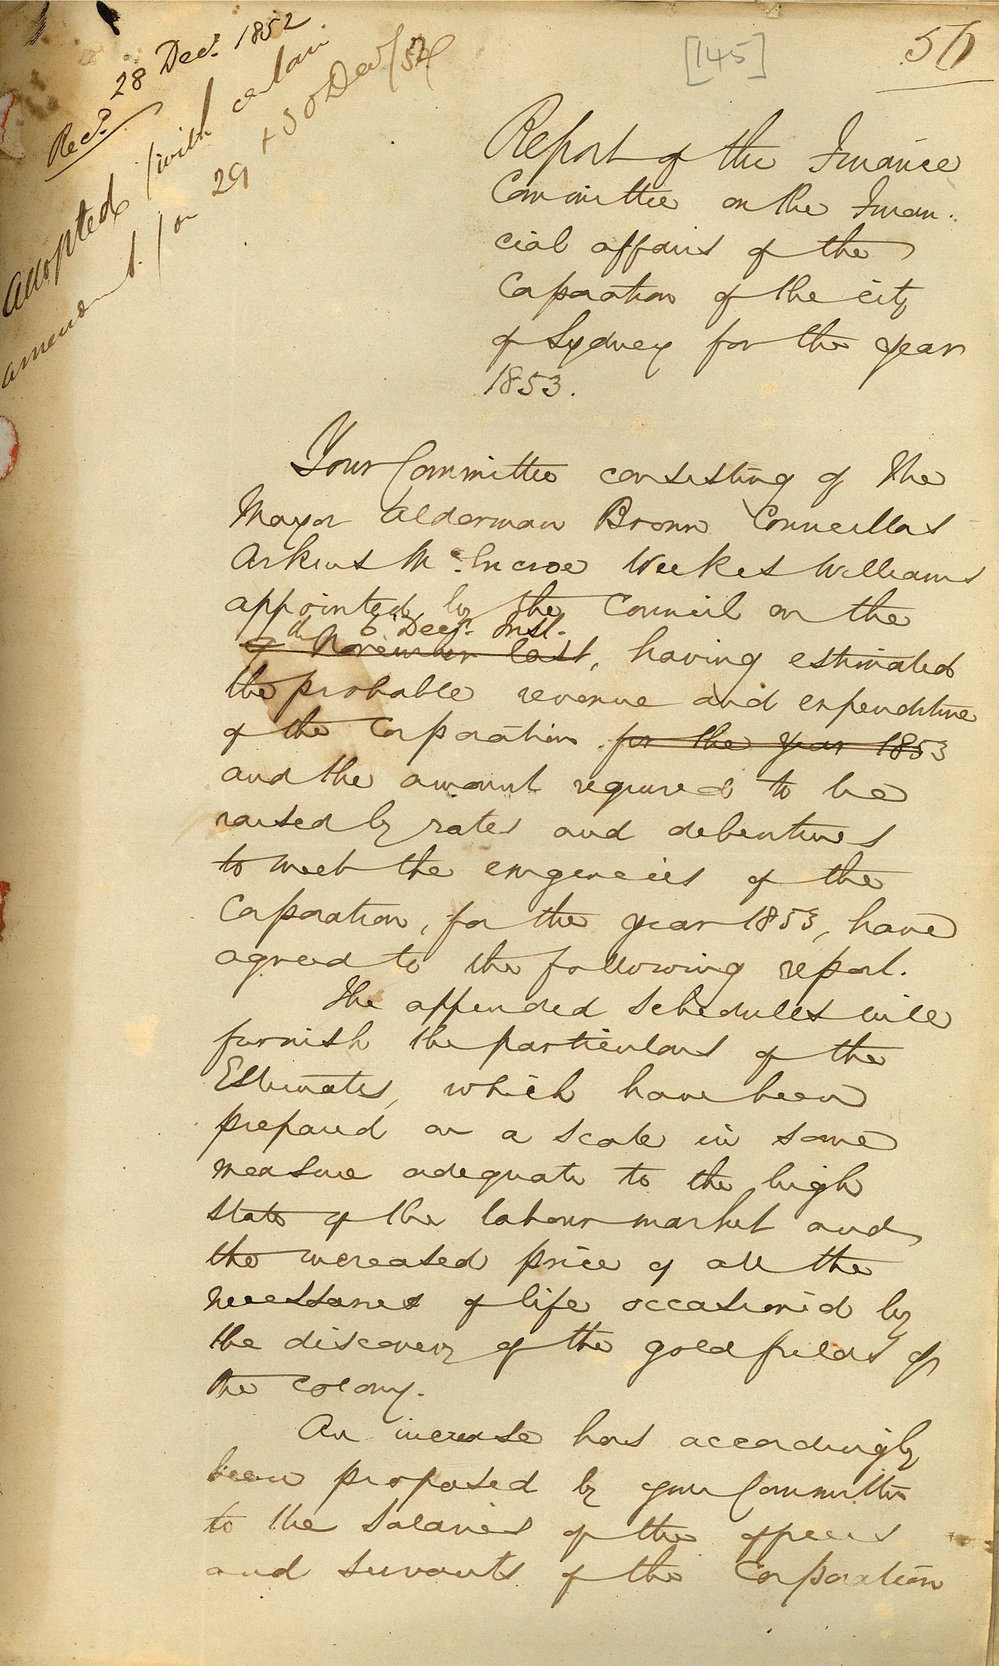 Recd. 28 Decr. 1852
Adopted (with certain
amendmt.) on 29 + 30 Decr/52
[145]
56
Report of the Finance
Committee on the Finan-
cial affairs of the
Corporation of the city
of Sydney for the year
1853.
Your Committee consisting of The
Mayor Alderman Brown Councillors
Arkins Mc.Encroe Weekes Williams
appointed by the Council on the
6 Decr. Inst.
9th November last, having estimated
the probable revenue and expenditure
of the Corporation for the year 1853
and the amount required to be
raised by rates and debentures
to meet the exigencies of the
Corporation, for the year 1853, have
agreed to the following report.
The appended schedules will
furnish the particulars of the
Estimates, which have been
prepared on a scale in some
measure adequate to the high
state of the labour market and
the increased price of all the
necessaries of life occasioned by
the discovery of the gold fields of
the colony.
An increase has accordingly
been proposed by your Committee
to the salaries of the officers
and servants of the Corporation